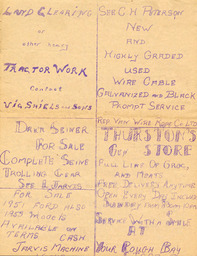 LAND CLEARING
or
other heavy
TRACTOR WORK
Contact
VIC. SHIELDS AND SONS
SEE C.H. PETERSON
NEW
AND
HIGHLY GRADED
USED
WIRE CABLE
GALVANIZED AND BLACK
PROMPT SERVICE
DRUM SEINER
FOR SALE
COMPLETE SEINE
TROLLING GEAR
SEE
JARVIS
FOR SALE
1951 FORD ALSO
1959 MODELS
AVAILABLE ON
TERMS CASH
JARVIS MACHINE
REP. VAN WIRE ROPE CO LTD
THURSTON'S
GEN STORE
FULL LINE OF GROC.
AND MEATS
FREE DELIVERY ANYTIME
OPEN EVERY DAY
SERVICE WITH A SMILE
AT
ROUGH BAY